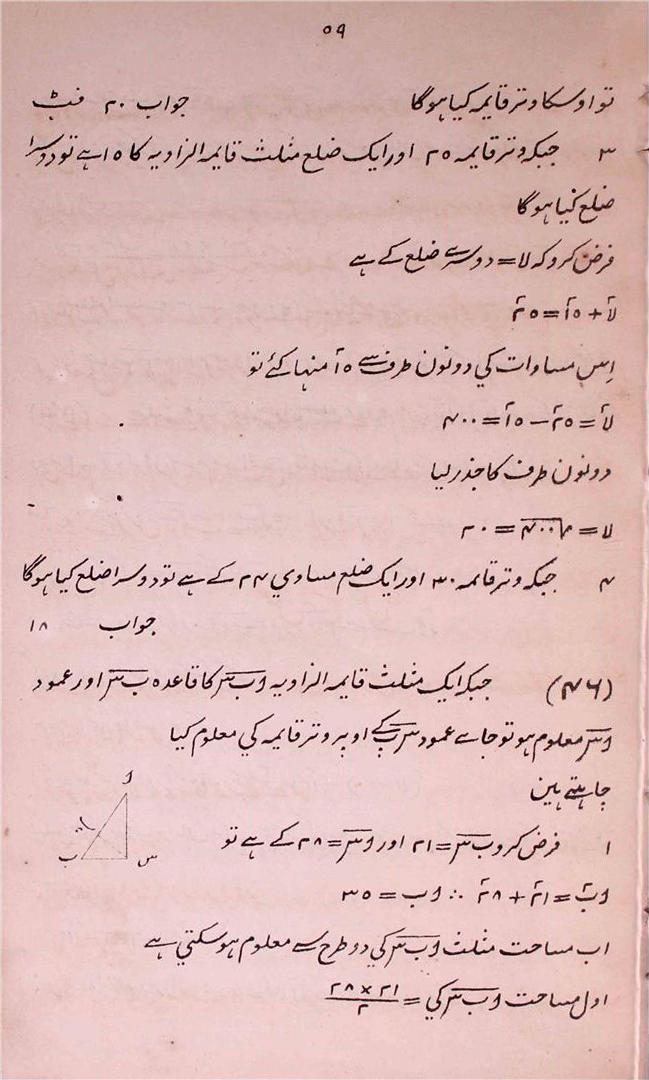 ۵۹
تو اوسکا وتر قایمہ کیا ہوگا جواب ۲۰ فیٹ
۳ جبکہ وتر قایمہ ۲۵ اور ایک ضلع مثلث قایمہ الزاویہ کا ۱۵ ہے تو دوسرا
ضلع کیا ہوگا
فرض کرو کہ لا = دوسرے ضلع کے ہے
لا۲ + ۱۵۲ = ۲۵۲
اِس مساوات کي دونون طرف سے ۱۵۲ منہا کئے تو
لا۲ = ۲۵۲ − ۱۵۲ = ۴۰۰
دونون طرف کا جذر لیا
لا = √۴۰۰ = ۲۰
۴ جبکہ وتر قایمہ ۳۰ اور ایک ضلع مساوي ۲۴ کے ہے تو دوسرا ضلع کیا ہوگا
جواب ۱۸
(۴۶) جبکہ ایک مثلث قایمہ الزاویہ ا ب س کا قاعدہ ب س اور عمود
ا س معلوم ہو تو جاے عمود س پ کے اوپر وتر قایمہ کي معلوم کیا
چاہتے ہین
ا
پ
ب س
۱ فرض کرو ب س = ۲۱ اور ا س = ۲۸ کے ہے تو
ا ب۲ = ۲۱۲ + ۲۸۲ ∴ ا ب = ۳۵
اب مساحت مثلث ا ب س کي دو طرح سے معلوم ہو سکتي ہے
اول مساحت ا ب س کي = ۲۱ × ۲۸ / ۲